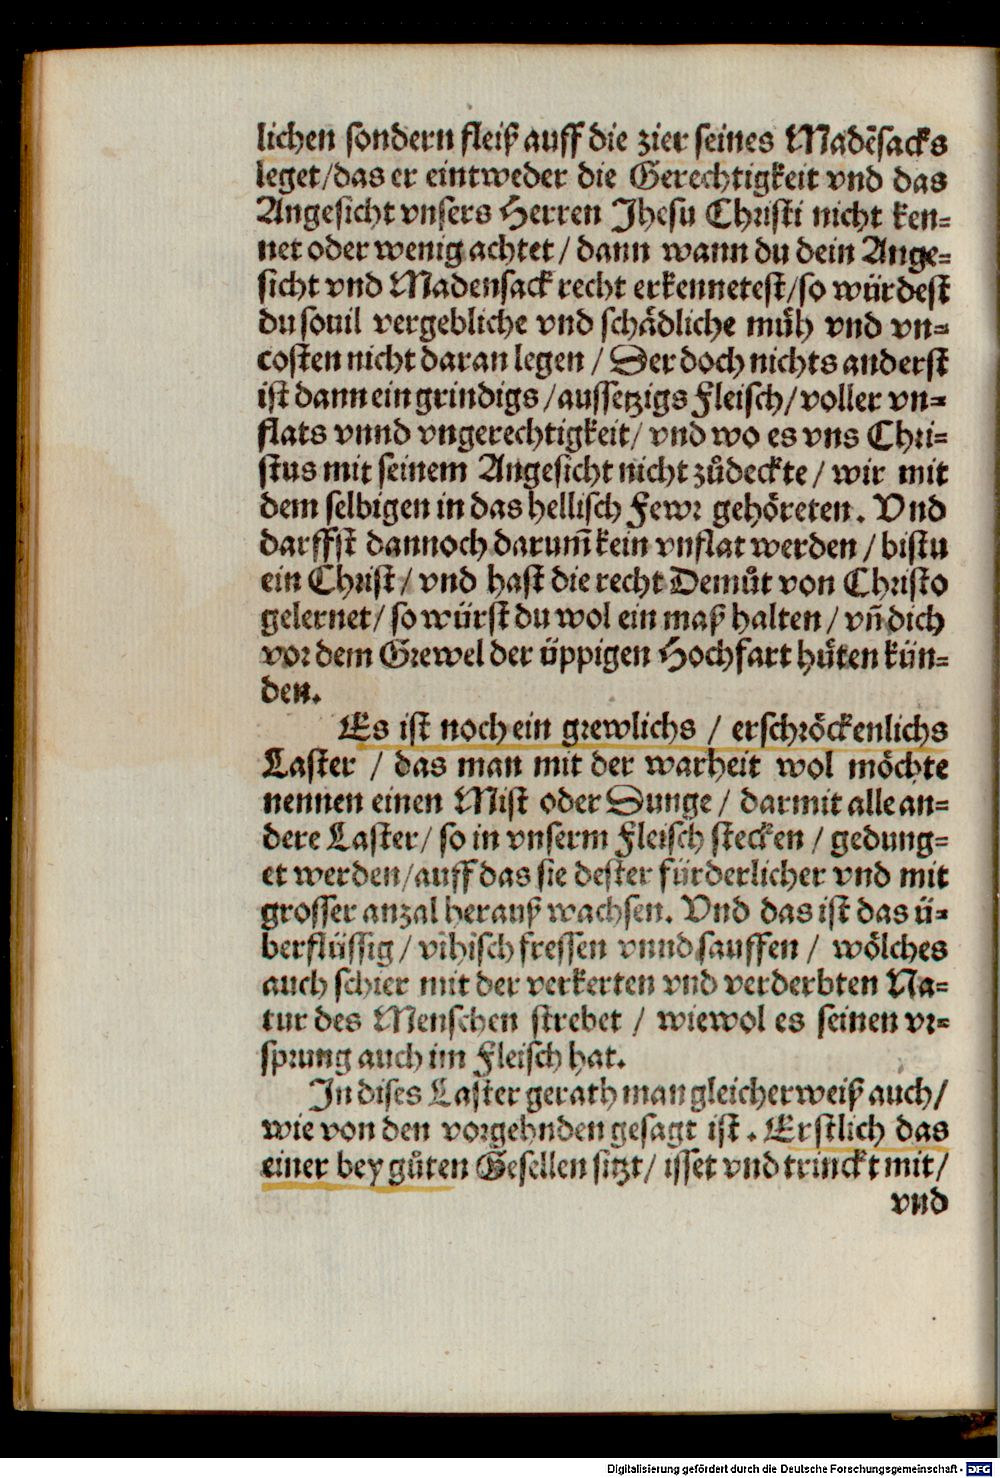 lichen sondern fleiß auff die zier seines Madẽsacks
leget/das er eintweder die Gerechtigkeit vnd das
Angesicht vnsers Herren Jhesu Christi nicht ken-
net oder wenig achtet / dann wann du dein Ange-
sicht vnd Madensack recht erkennetest/so würdest
du souil vergebliche vnd schädliche müh vnd vn-
costen nicht daran legen / Der doch nichts anderst
ist dann ein grindigs /aussetzigs Fleisch/voller vn-
flats vnnd vngerechtigkeit/ vnd wo es vns Chri-
stus mit seinem Angesicht nicht zůdeckte / wir mit
dem selbigen in das hellisch Fewr gehöreten. Vnd
darffst dannoch darum̃ kein vnflat werden / bistu
ein Christ / vnd hast die recht Demůt von Christo
gelernet/ so würst du wol ein maß halten / vñ dich
vor dem Grewel der üppigen Hochfart hüten kün-
den.
Es ist noch ein grewlichs / erschröckenlichs
Laster / das man mit der warheit wol möchte
nennen einen Mist oder Dunge / darmit alle an-
dere Laster/ so in vnserm Fleisch stecken / gedung-
et werden/auff das sie dester fürderlicher vnd mit
grosser anzal herauß wachsen. Vnd das ist das ü-
berflüssig / vihisch fressen vnnd sauffen / wölches
auch schier mit der verkerten vnd verderbten Na-
tur des Menschen strebet / wiewol es seinen vr-
sprung auch im Fleisch hat.
In dises Laster gerath man gleicherweiß auch/
wie von den vorgehnden gesagt ist . Erstlich das
einer bey gůten Gesellen sitzt/ isset vnd trinckt mit/
vnd
Digitalisierung gefördert durch die Deutsche Forschungsgemeinschaft - DFG